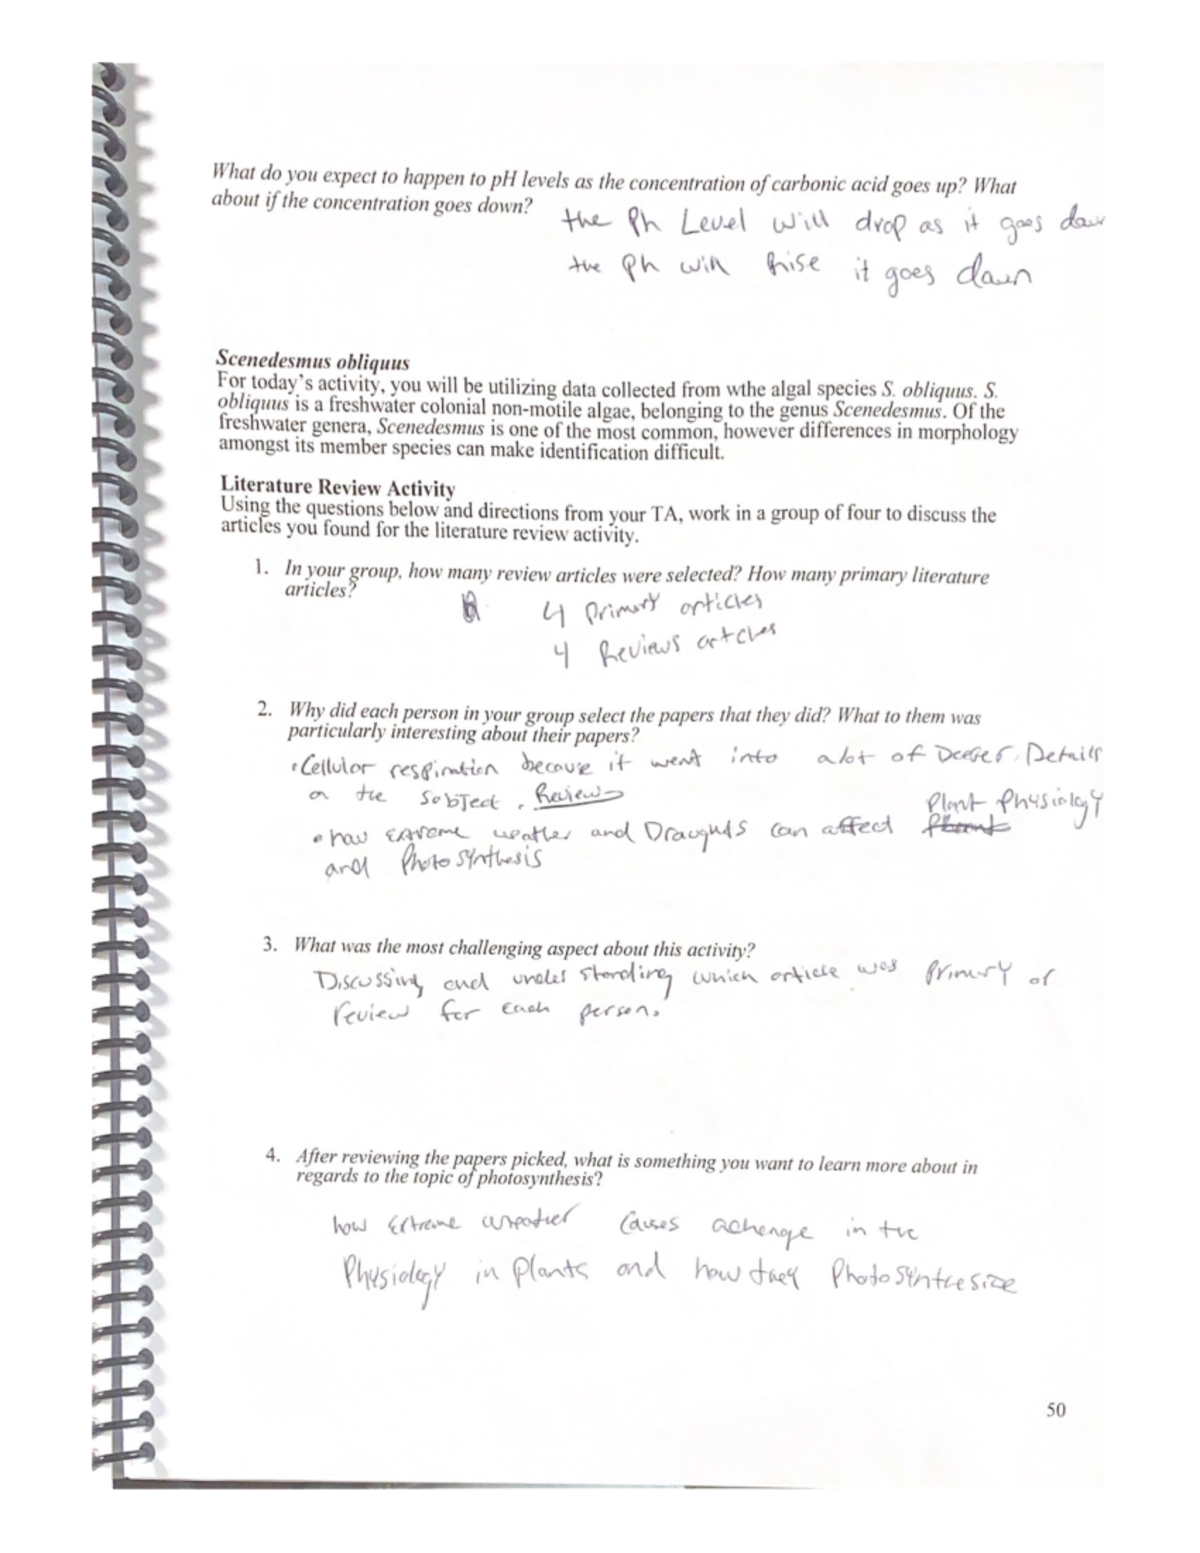 What do you expect to happen to pH levels as the concentration of carbonic acid goes up? What
about if the concentration goes down?
the Ph Level will drop as it goes down
the Ph will Rise it goes down
Scenedesmus obliquus
For today's activity, you will be utilizing data collected from wthe algal species S. obliquus. S.
obliquus is a freshwater colonial non-motile algae, belonging to the genus Scenedesmus. Of the
freshwater genera, Scenedesmus is one of the most common, however differences in morphology
amongst its member species can make identification difficult.
Literature Review Activity
Using the questions below and directions from your TA, work in a group of four to discuss the
articles you found for the literature review activity.
1. In your group, how many review articles were selected? How many primary literature
articles?
4 Primary articles
4 Reviews artcles
2. Why did each person in your group select the papers that they did? What to them was
particularly interesting about their papers?
• Cellular respiration because it went into alot of Deeper Details
on the Sobject. Review
Plant Physiology
• how Extreme weather and Draughts can affect
and Photosynthesis
3. What was the most challenging aspect about this activity?
Discussing and understanding which article was Primary or
review for each person.
4. After reviewing the papers picked, what is something you want to learn more about in
regards to the topic of photosynthesis?
how Extreme weather Causes achenge in the
Physiology in plants and how they Photosynthesize
50